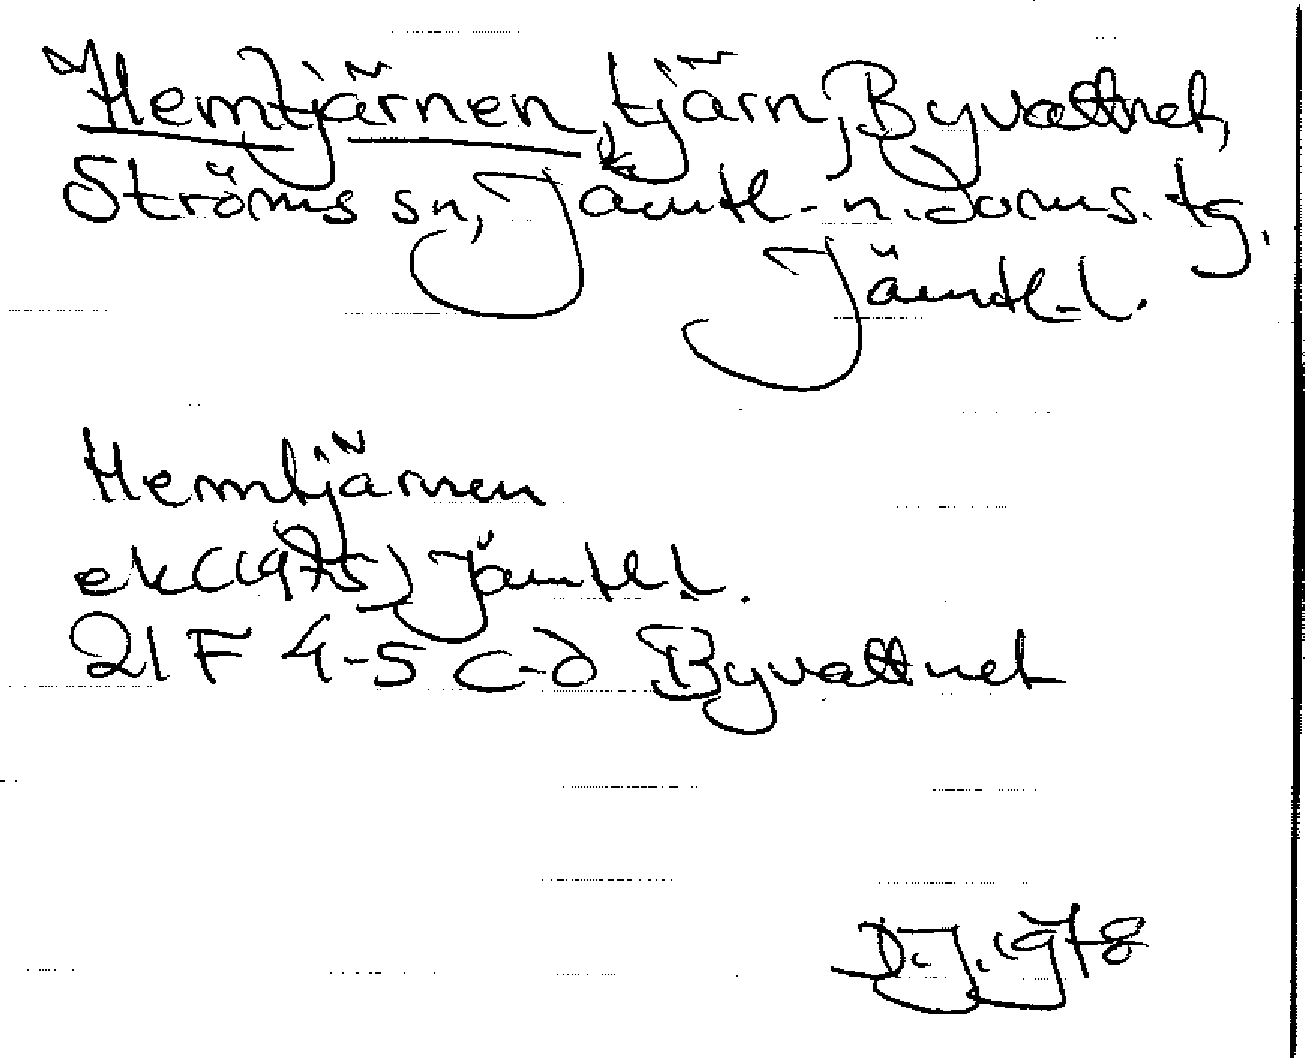 Hemtjärnen, tjärn, Byvattnet,
Ströms sn, Jämtl. n. doms. tg.
Jämtl. l.
Hemtjärnen
ek (1975) Jämtl. l.
21 F 4-5 c-d Byvattnet
D.J. 1978